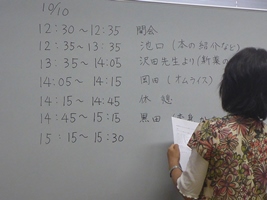 19/10
12:30～12:35 開会
12:35～13:35 池口(本の紹介など)
13:35～14:05 沢田先生より(新薬の
14:05～14:15 岡田(オムライス)
14:15～14:45 休憩
14:45～15:15 黒田
15:15～15:30